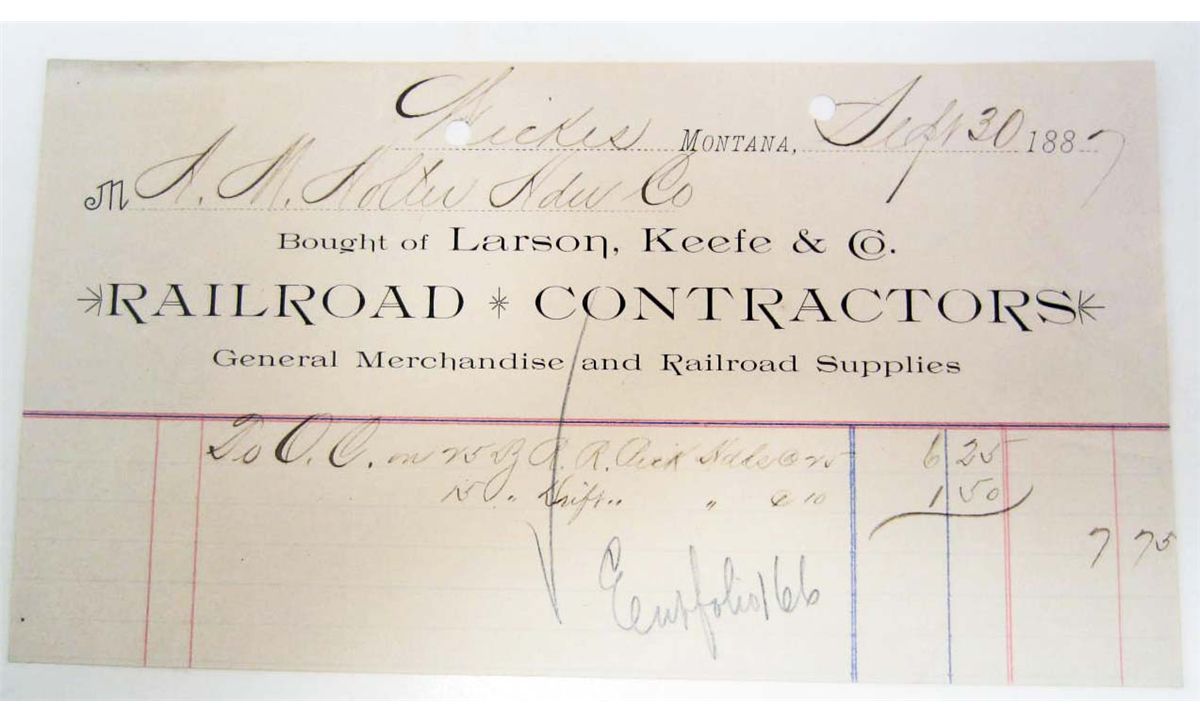 Wickes Montana, Sept 30 1887
M A. M. Holter Hdw Co
Bought of Larson, Keefe & Co.
RAILROAD * CONTRACTORS
General Merchandise and Railroad Supplies
To O. C. on 25 Dz R. R. Pick Hdls @ 25 6 25
15 " Drift " " @ 10 1 50
7 75
Ent folio 166